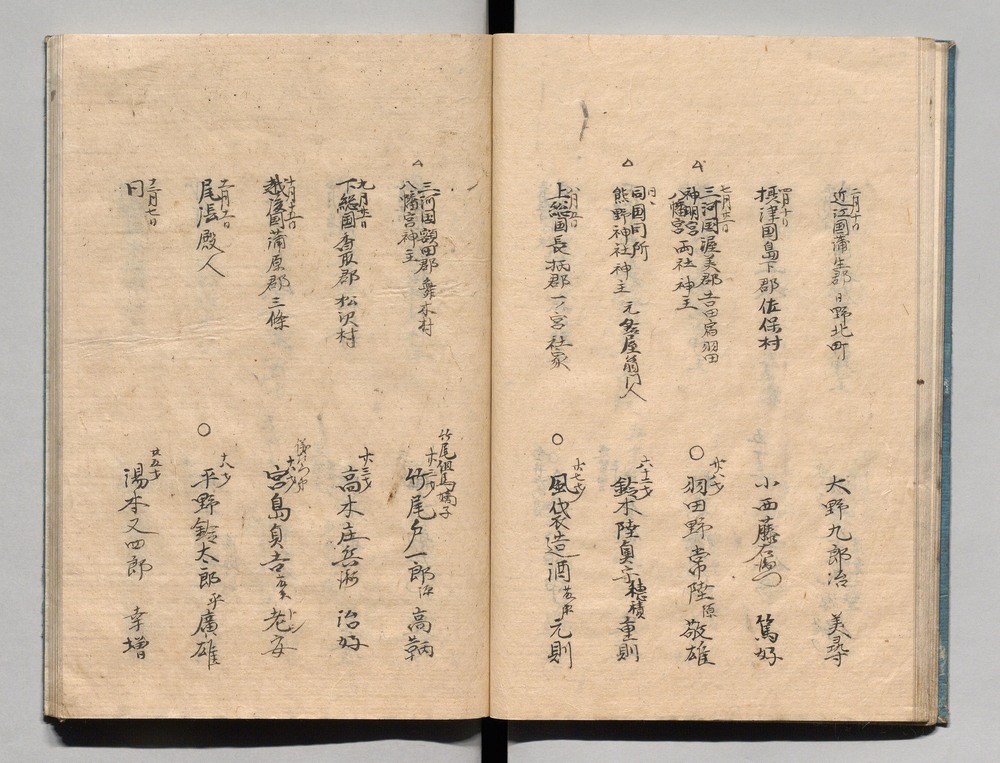 二月十日
近江国蒲生郡日野北町
大野九郎治 美尋
四月十日
摂津国島下郡佐保村
小西藤右衛門 篤好
七月廿二日
三河国渥美郡吉田宿羽田
神明宮
八幡宮 両社神主
廿八才
羽田野常陸 敬雄
同国同所
熊野神社神主 元名屋翁門人
六十二才
鈴木陸奥守 穂積 重則
上総国長柄郡一ノ宮社家
廿七才
風袋造酒 元則
三河国額田郡舞木村
八幡宮神主
竹尾但馬嫡子
廿三才
竹尾戸一郎 源 高鞆
九月廿日
下総国香取郡松沢村
廿三才
高木庄兵衛 治好
越後国蒲原郡三條
宮島貞吉 老安
尾張殿人
十八才
平野鈴太郎 平廣雄
十二月七日
同
廿五才
湯本又四郎 幸増